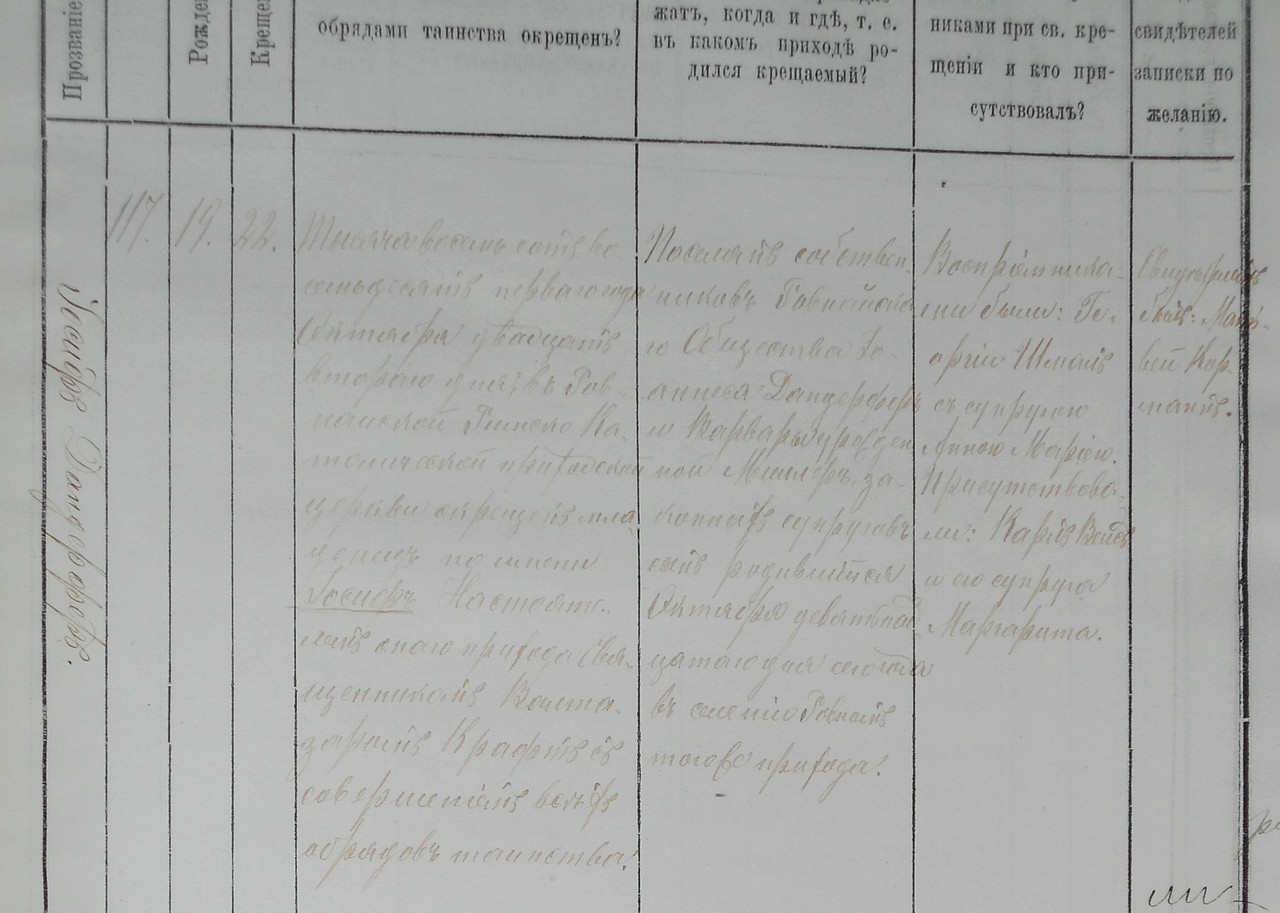 Прозваніе
Рожде
Крещен
обрядами таинства окрещенъ?
жатъ, когда и гдѣ, т. е.
въ какомъ приходѣ ро-
дился крещаемый?
никами при св. кре-
щеніи и кто при-
сутствовалъ?
свидѣтелей
записки по
желанію.
Іосифъ Дандорферъ.
117.
19.
22.
Тысяча восемь сотъ во-
семьдесятъ перваго года
Октября двадцать
втораго дня, въ Ров-
найской Римско Ка-
толической приходской
церкви окрещенъ мла-
денецъ по имени
Іосифъ Настояте-
лемъ оного прихода Свя-
щенникомъ Валта-
заромъ Крафтъ съ
совершеніемъ всѣхъ
обрядовъ таинства.
Поселянъ собствен-
никовъ Ровнайска-
го Общества Іо-
аннеса Дандорферъ
и Варвары урожден
ной Миллеръ, за-
конныхъ супруговъ
сынъ родившійся
Октября девятнад
цатаго дня сего года
въ селеніи Ровномъ
того же прихода.
Воспріемника-
ми были: Ге-
оргій
съ супругою
Анною Маріею.
Присутствова-
ли: Карлъ Вейсъ
и его супруга
Маргарита.
Свидетелемъ
былъ: Мат-
вей